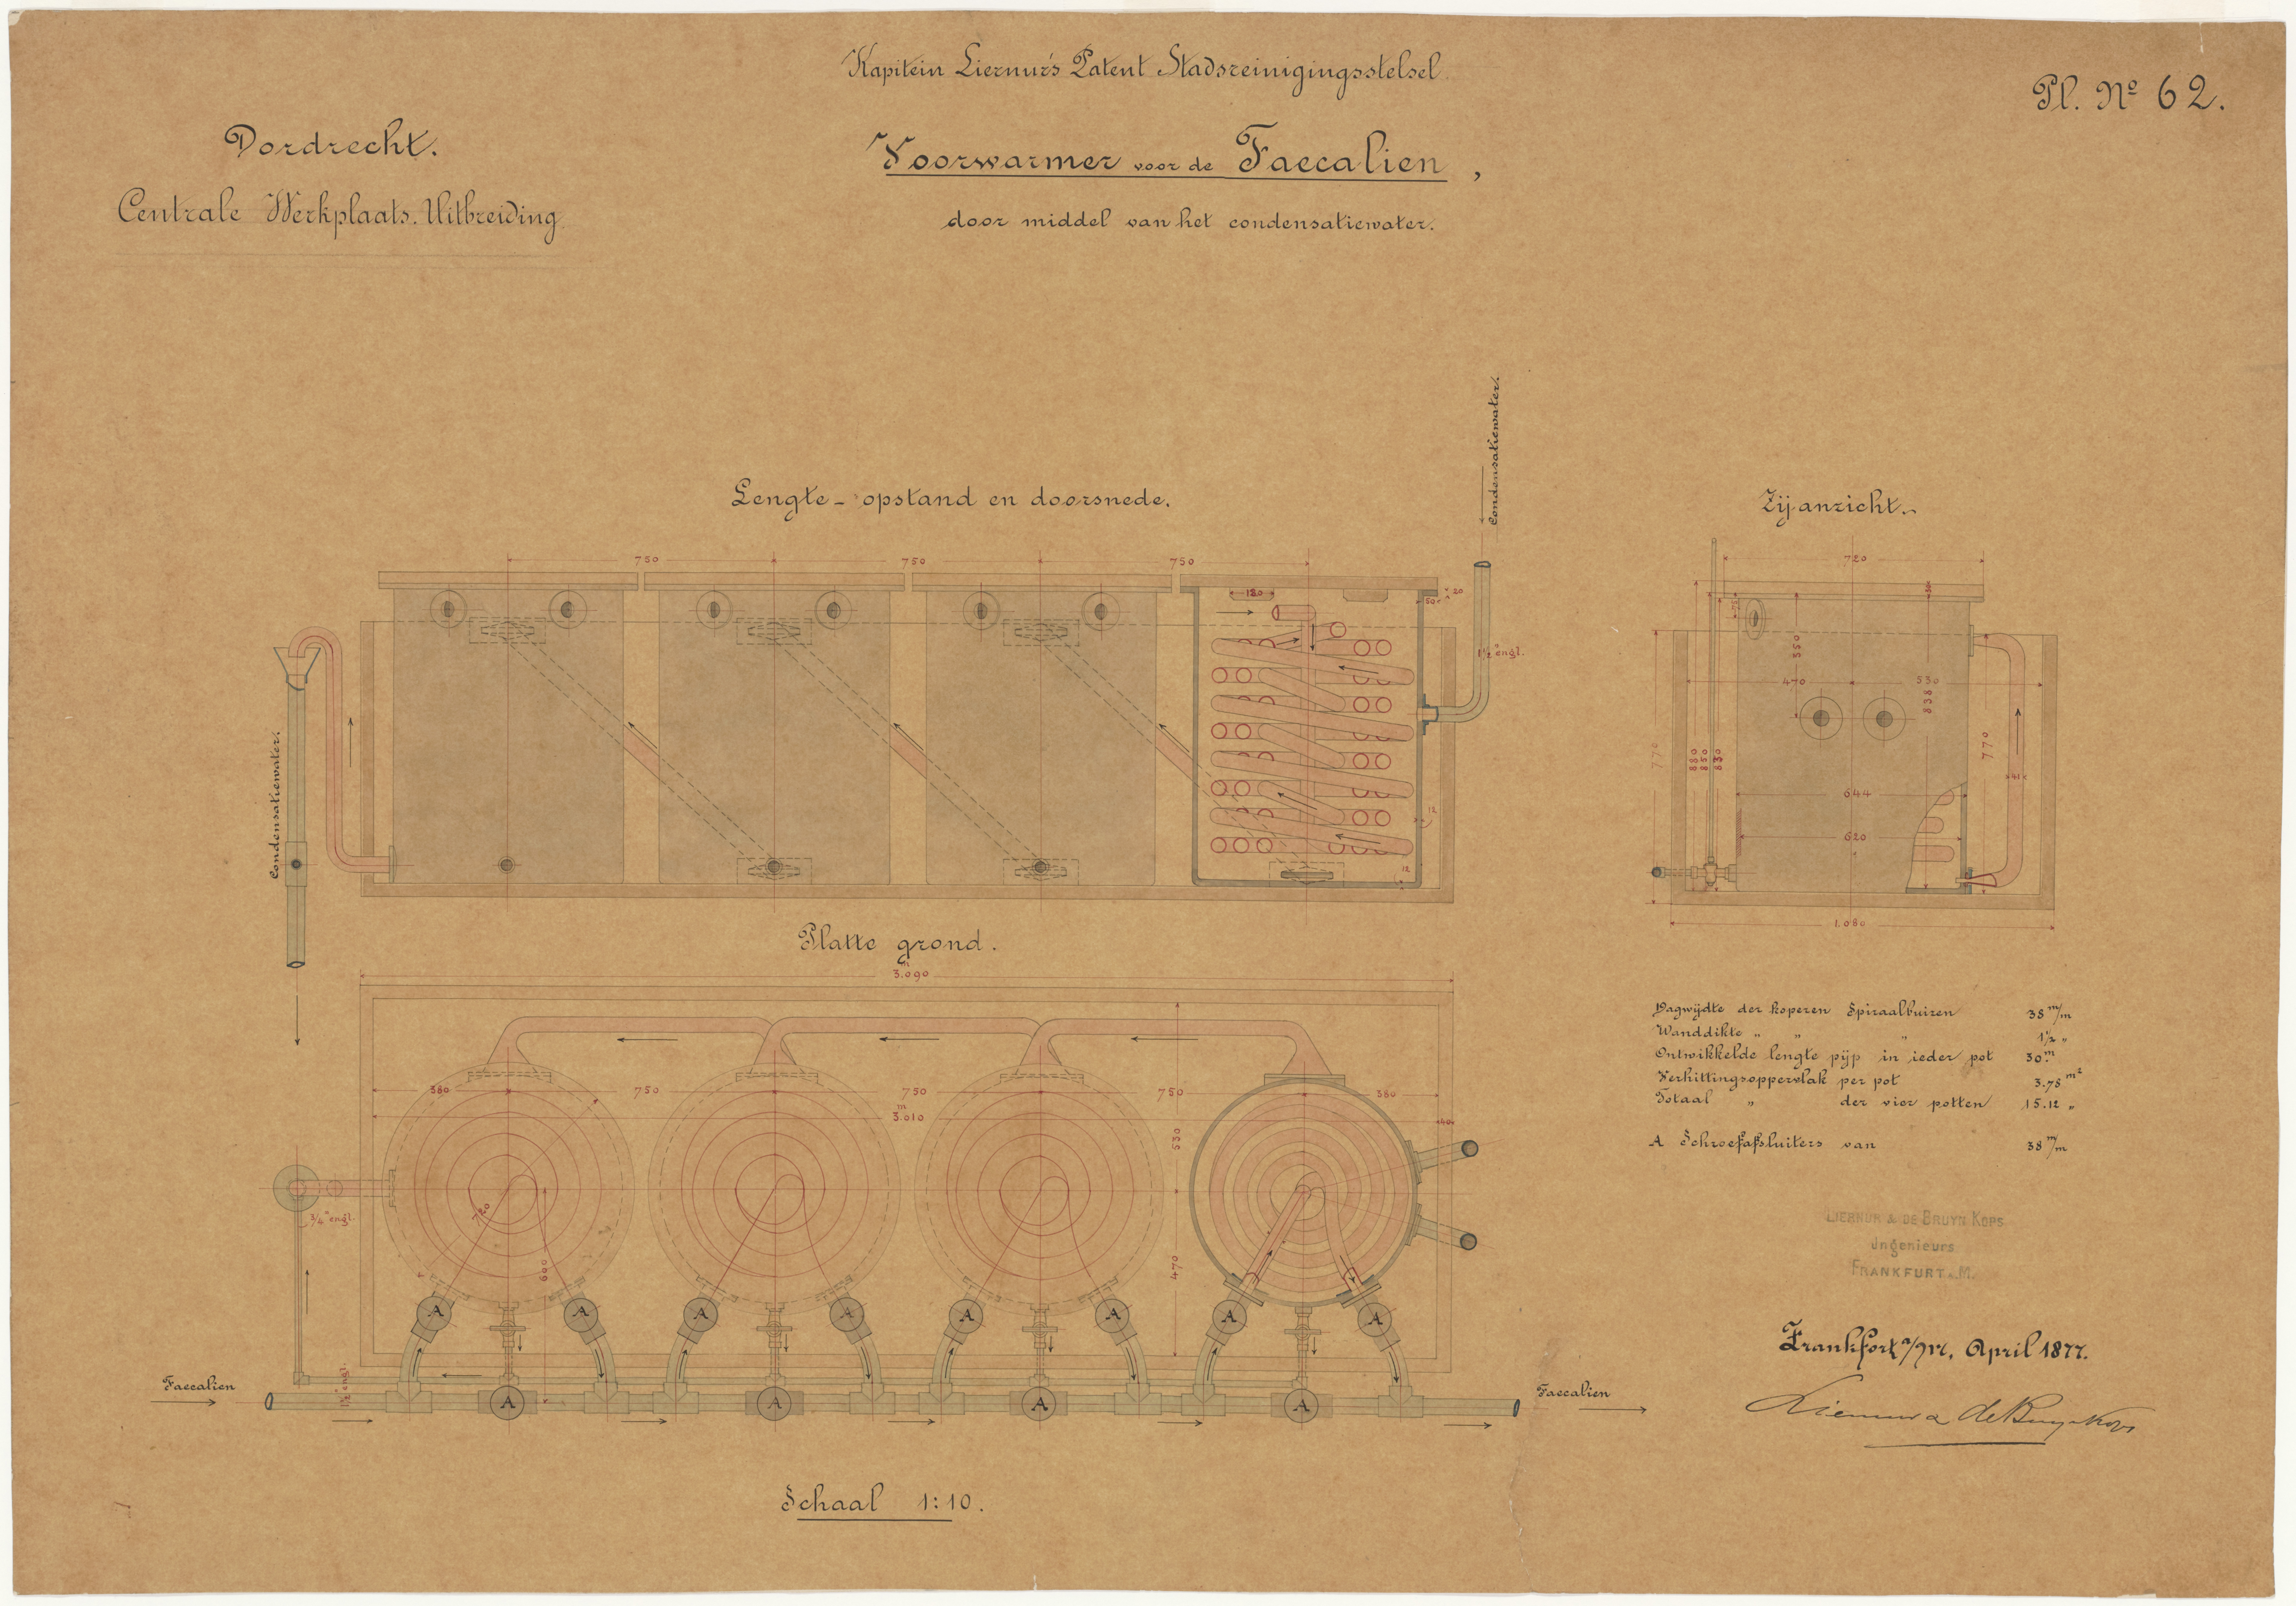 Kapitein Liernur's Patent Stadsreinigingsstelsel.
Pl. Nº 62.
Dordrecht.
Centrale Werkplaats. Uitbreiding.
Voorwarmer voor de Faecalien,
door middel van het condensatiewater.
Lengte-opstand en doorsnede.
Condensatiewater.
750
750
750
120
50
20
1½" engl.
12
12
Condensatiewater.
Zijanzicht.
720
550
470
530
838
770
880
850
830
770
41
644
620
1.080
Platte grond.
3.090 m
380
750
750
750
380
3.010 m
40
530
470
720
600
3/4" engl.
1½" engl.
A A A A A A A A
A A A A
Faecalien
Faecalien
Dagwijdte der koperen Spiraalbuizen 38 m/m
Wanddikte " " " 1½ "
Ontwikkelde lengte pijp in ieder pot 30 m.
Verhittingsoppervlak per pot 3.78 m²
Totaal " der vier potten 15.12 "
A Schroefafsluiters van 38 m/m
LIERNUR & DE BRUYN KOPS
Ingenieurs
FRANKFURT a. M.
Frankfort a/M, April 1877.
Liernur & de Bruyn Kops
Schaal 1:10.